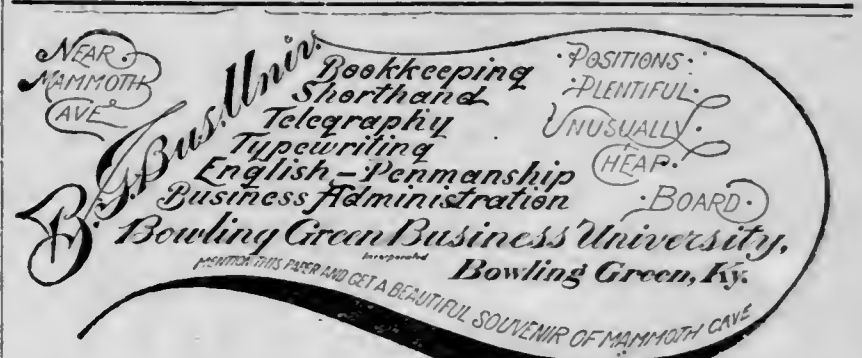 NEAR
MAMMOTH
CAVE
B.G. Bus. Univ.
Bookkeeping
Shorthand
Telegraphy
Typewriting
English - Penmanship
Business Administration
· POSITIONS ·
· PLENTIFUL ·
UNUSUALLY
CHEAP ·
· BOARD ·
Bowling Green Business University,
Incorporated
Bowling Green, Ky.
MENTION THIS PAPER AND GET A BEAUTIFUL SOUVENIR OF MAMMOTH CAVE